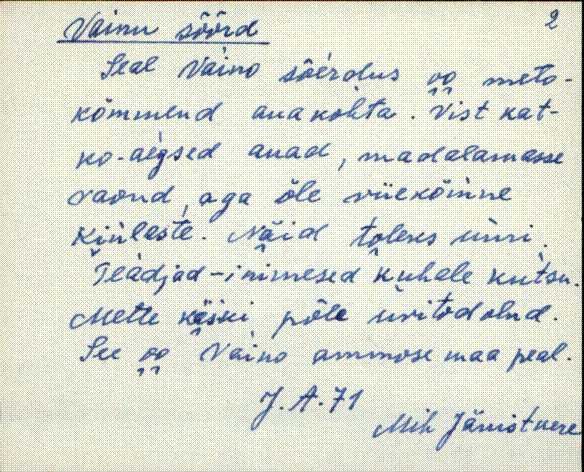 Vainu sõõrd 2
Seal Vaino sõerdus oo meto-
kömmend auakohta. Vist kat-
ko-aegsed auad, madalamasse
vaond, aga õle viiekõmne
kiilaste. Näid toleks uuri.
Teadjad-inimesed kuhale kutsu.
Mette käsiki põle uuritod olnd.
See oo Vaino ammose maa peal.
J. A. 71
Mih Jänistvere